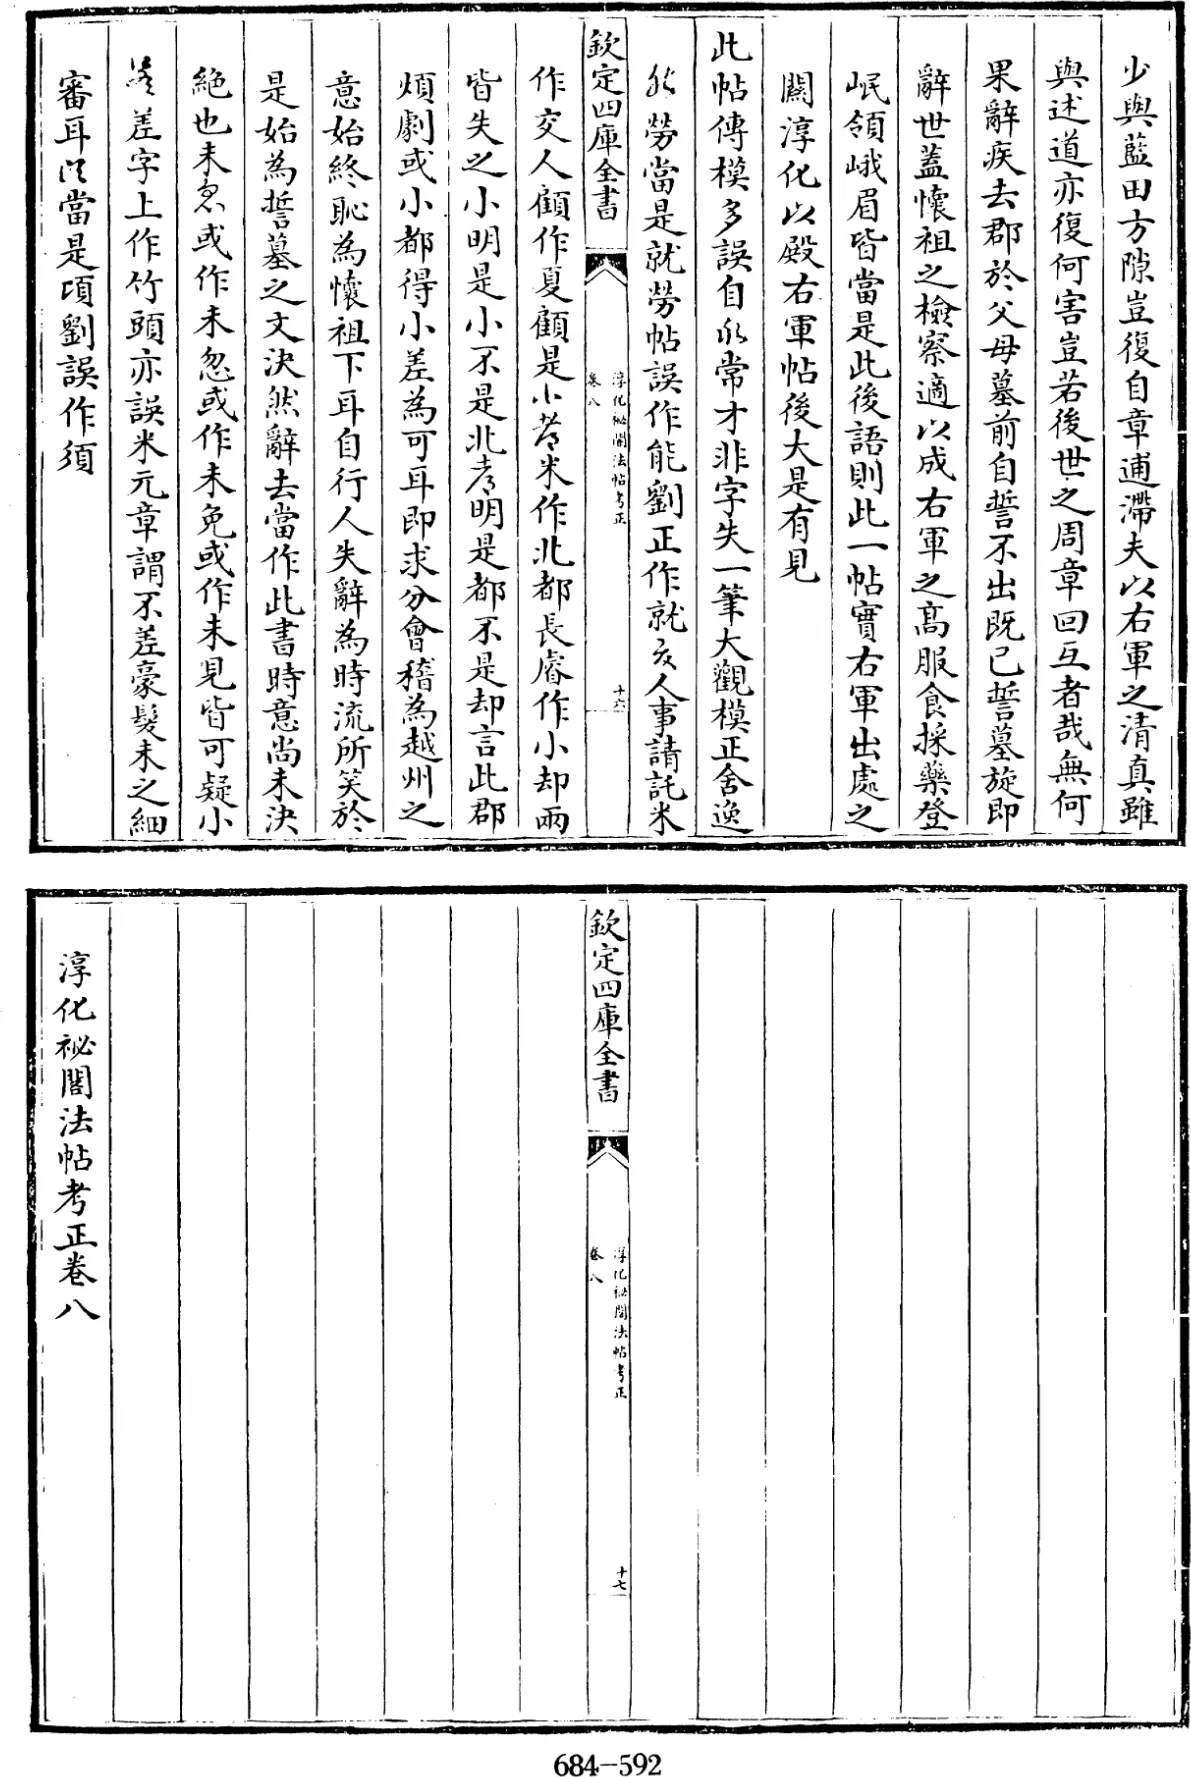 少與藍田方隙豈復自章逋滯夫以右軍之清真雖
與述道亦復何害豈若後世之周章回互者哉無何
果辭疾去郡於父母墓前自誓不出既已誓墓旋即
辭世蓋懷祖之檢察適以成右軍之高服食採藥登
岷領峨眉皆當是此後語則此一帖實右軍出處之
關淳化以殿右軍帖後大是有見
此帖傳模多誤自 常才非字失一筆大觀模正舍逸
勞當是就勞帖誤作能劉正作就 人事請託米
欽定四庫全書
淳化祕閣法帖考正
卷八
十六
作交人顧作夏顧是 米作 都長睿作小却兩
皆失之小明是小不是 明是都不是却言此郡
煩劇或小都得小差為可耳即求分會稽為越州之
意始終恥為懷祖下耳自行人失辭為時流所笑於
是始為誓墓之文決然辭去當作此書時意尚未決
絶也未 或作未忽或作未免或作未見皆可疑小
差字上作竹頭亦誤米元章謂不差豪髮未之細
審耳 當是項劉誤作須
欽定四庫全書
淳化祕閣法帖考正
卷八
十七
淳化祕閣法帖考正卷八
684-592